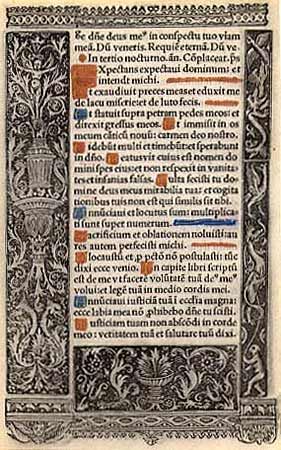 ge dñe deus me⁹ in conspectu tuo viam
meã. Dũ veneris. Requiẽ eternã. Dũ ve
In tertio nocturno. añ. Cõplaceat. ps
Expectans expectaui dominum: et
intendit michi.
Et exaudiuit preces meas et eduxit me
de lacu miserie: et de luto fecis.
Et statuit supra petram pedes meos: et
direxit gressus meos. Et immisit in os
meum cãticũ nouũ: carmen deo nostro.
Uidebũt multi et timebũt: et sperabunt
in dño. Beatus vir cuius est nomen do
mini spes eius: et non respexit in vanita
tes et insanias falsas. Multa fecisti tu do
mine deus meus mirabilia tua: et cogita
tionibus tuis non est qui similis sit tibi.
Annũciaui et locutus sum: multiplica
ti sunt super numerum.
Sacrificium et oblationem noluisti: au
res autem perfecisti michi.
Holocaustũ et p pctõ nõ postulasti: tũc
dixi ecce venio. In capite libri scriptũ
est de me vt facerẽ volũtatẽ tuã de⁹ me⁹
volui et legẽ tuã in medio cordis mei.
Annũciaui iusticiã tuã ĩ ecclia magna:
ecce labia mea nõ phibebo dñe tu scisti.
Iusticiam tuam non abscõdi in corde
meo: veritatem tuã et salutare tuũ dixi.